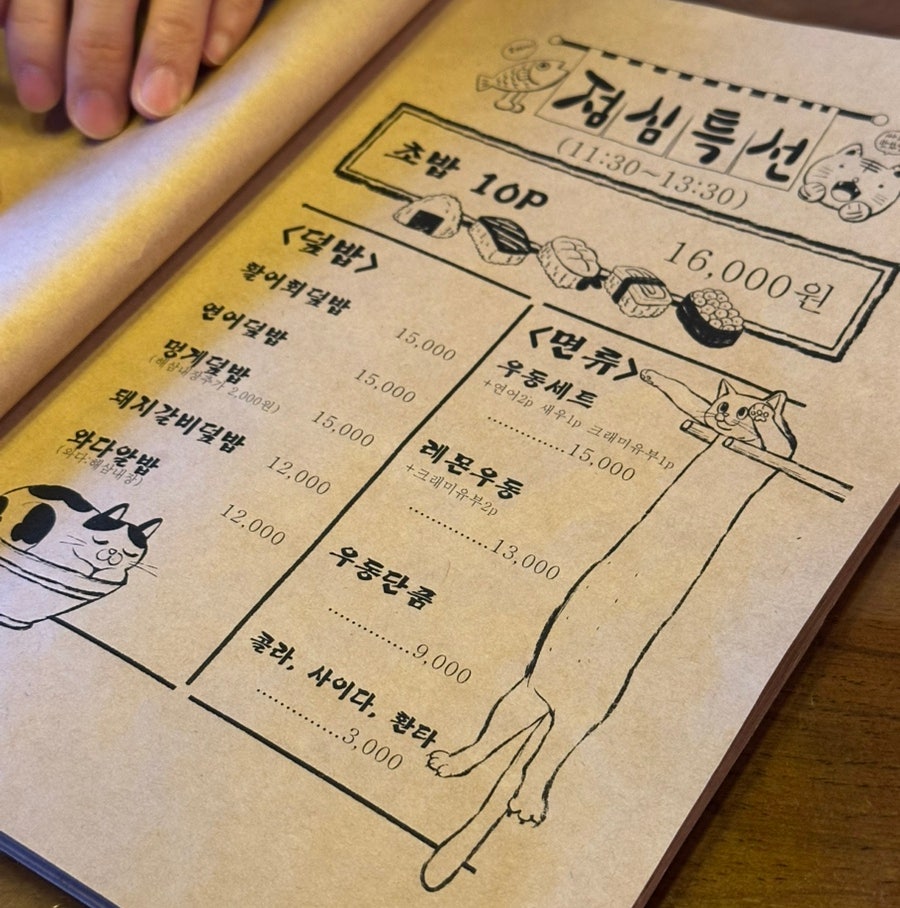 점심특선
(11:30~13:30)
초밥 10P
16,000원
<덮밥>
활어회덮밥
15,000
연어덮밥
15,000
멍게덮밥
(해삼내장추가 2,000원)
15,000
돼지갈비덮밥
12,000
와다알밥
(와다:해삼내장)
12,000
<면류>
우동세트
+연어2p 새우1p 크래미유부1p
..............15,000
레몬우동
+크래미유부2p
..............13,000
우동단품
..............9,000
콜라, 사이다, 환타
..............3,000